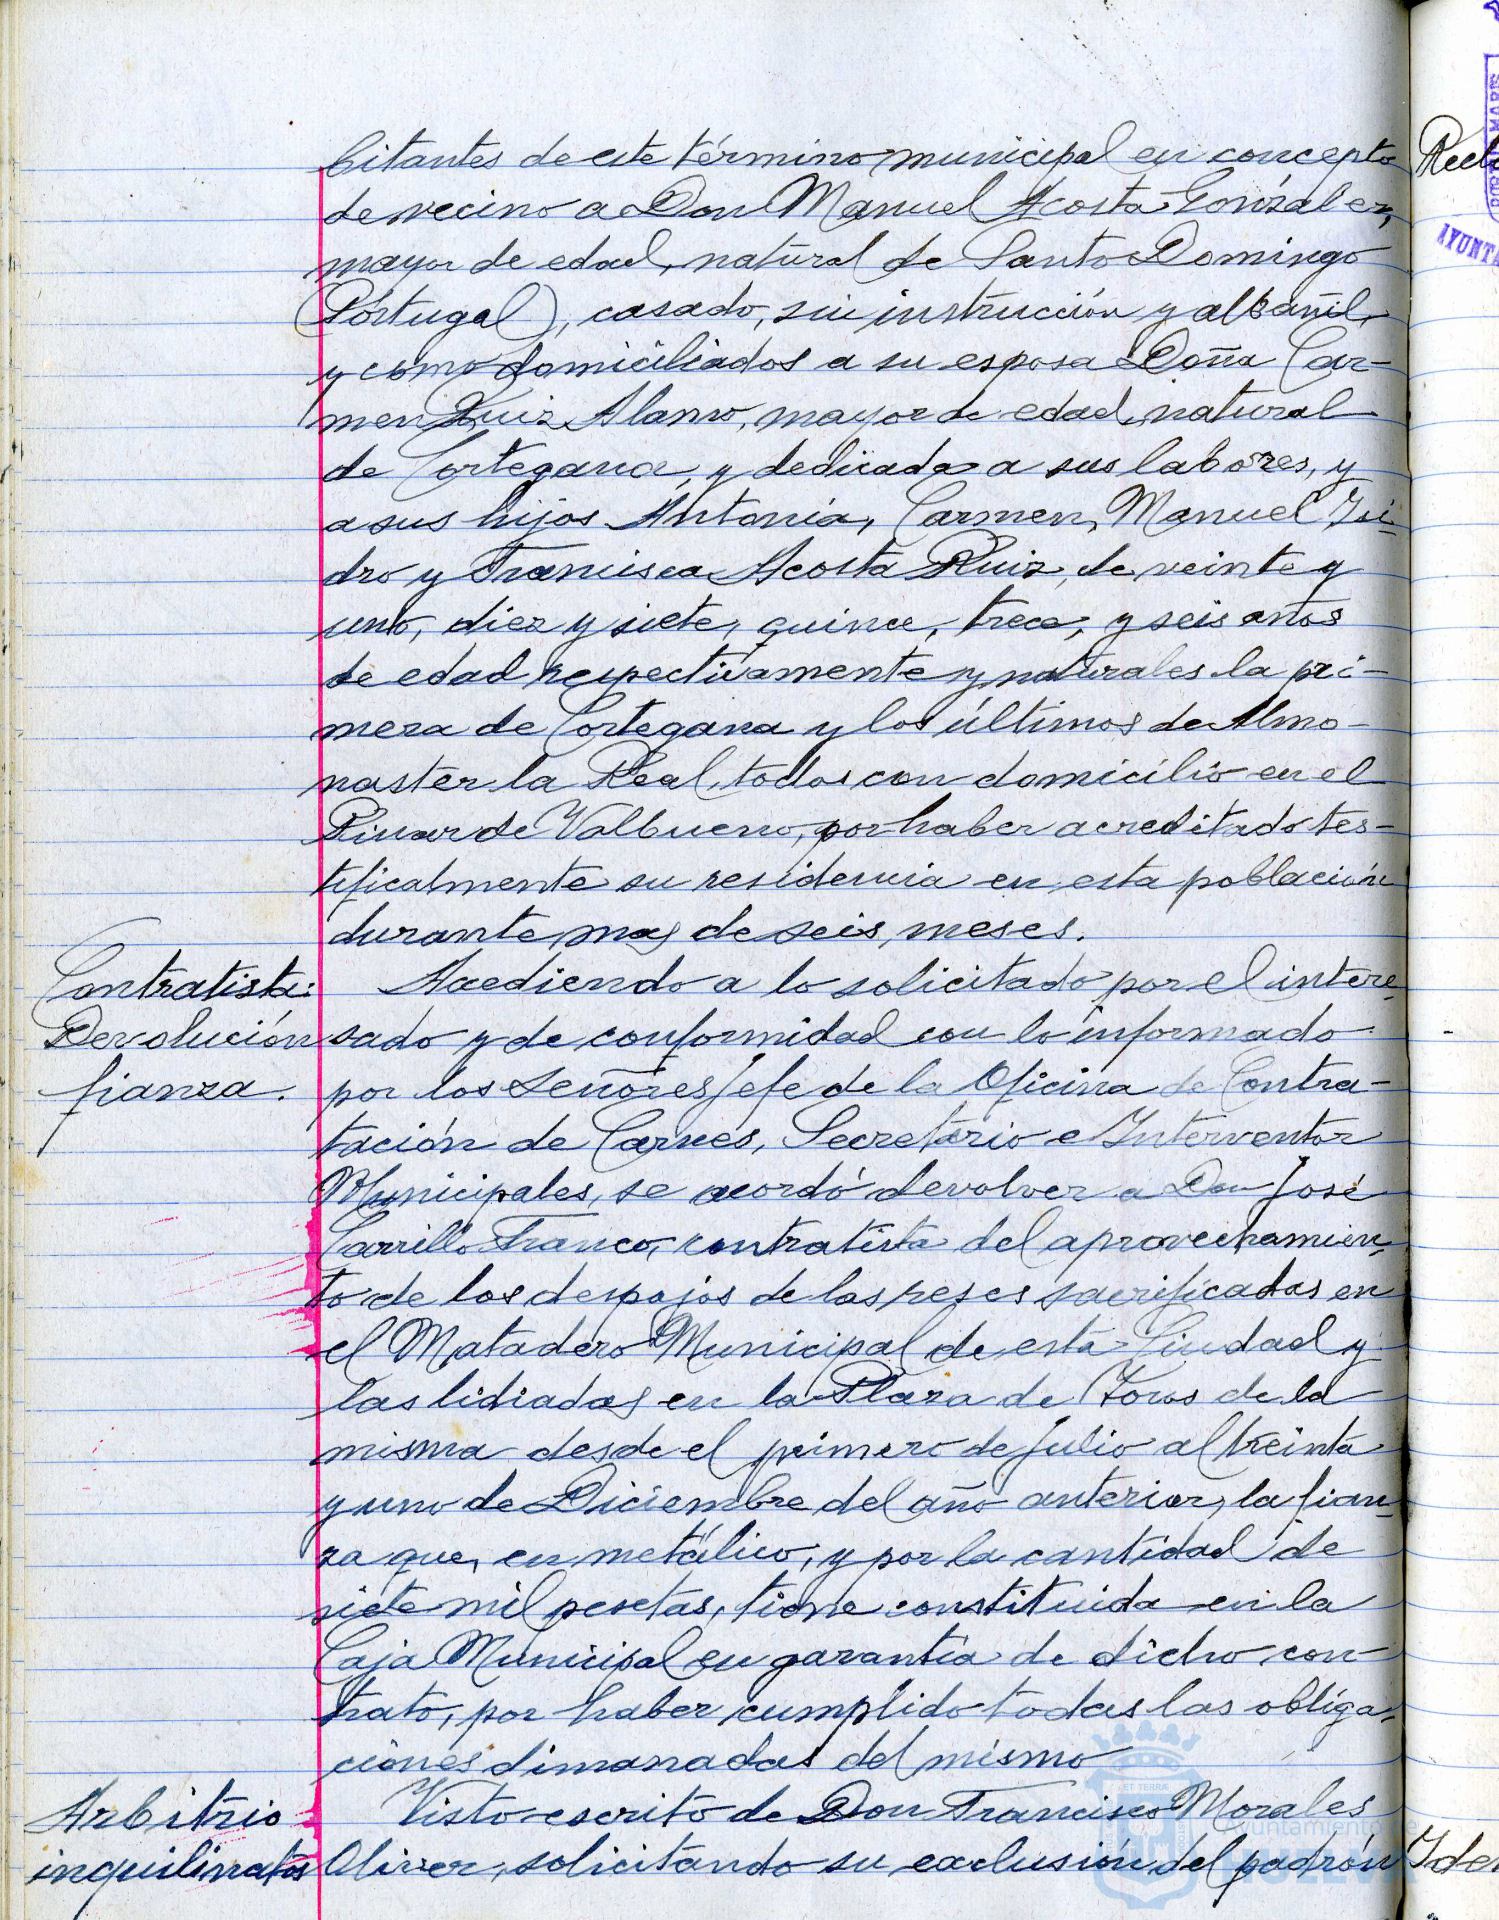 bitantes de este término municipal en concepto
de vecino a Don Manuel Acosta González,
mayor de edad, natural de Santo Domingo
(Pórtugal), casado, sin instrucción y albañil,
y como domiciliados a su esposa Doña Car-
men Ruiz Alamo, mayor de edad, natural
de Cortegana, y dedicada a sus labores, y
a sus hijos Antonia, Carmen, Manuel Isi-
dro y Francisca Acosta Ruiz, de veinte y
uno, diez y siete, quince, trece, y seis años
de edad respectivamente y naturales la pri-
mera de Cortegana y los últimos de Almo-
naster la Real, todos con domicilio en el
Pinar de Valbueno, por haber acreditado tes-
tificalmente su residencia en esta población
durante mas de seis meses.
Contratista: Accediendo a lo solicitado por el intere-
Devolución sado y de conformidad con lo informado
fianza. por los Señores Jefe de la Oficina de Contra-
tación de Carnes, Secretario e Interventor
Municipales, se acordó devolver a Don José
Carrillo Franco, contratista del aprovechamien-
to de los despojos de las reses sacrificadas en
el Matadero Municipal de esta Ciudad y
las lidiadas en la Plaza de Toros de la
misma desde el primero de Julio al treinta
y uno de Diciembre del año anterior, la fian-
za que, en metálico, y por la cantidad de
siete mil pesetas, tiene constituida en la
Caja Municipal en garantia de dicho con-
trato, por haber cumplido todas las obliga-
ciones dimanadas del mismo
Arbitrio Visto escrito de Don Francisco Morales
inquilinatos Oliver, solicitando su exclusión del padrón
Ayuntamiento de
HUELVA